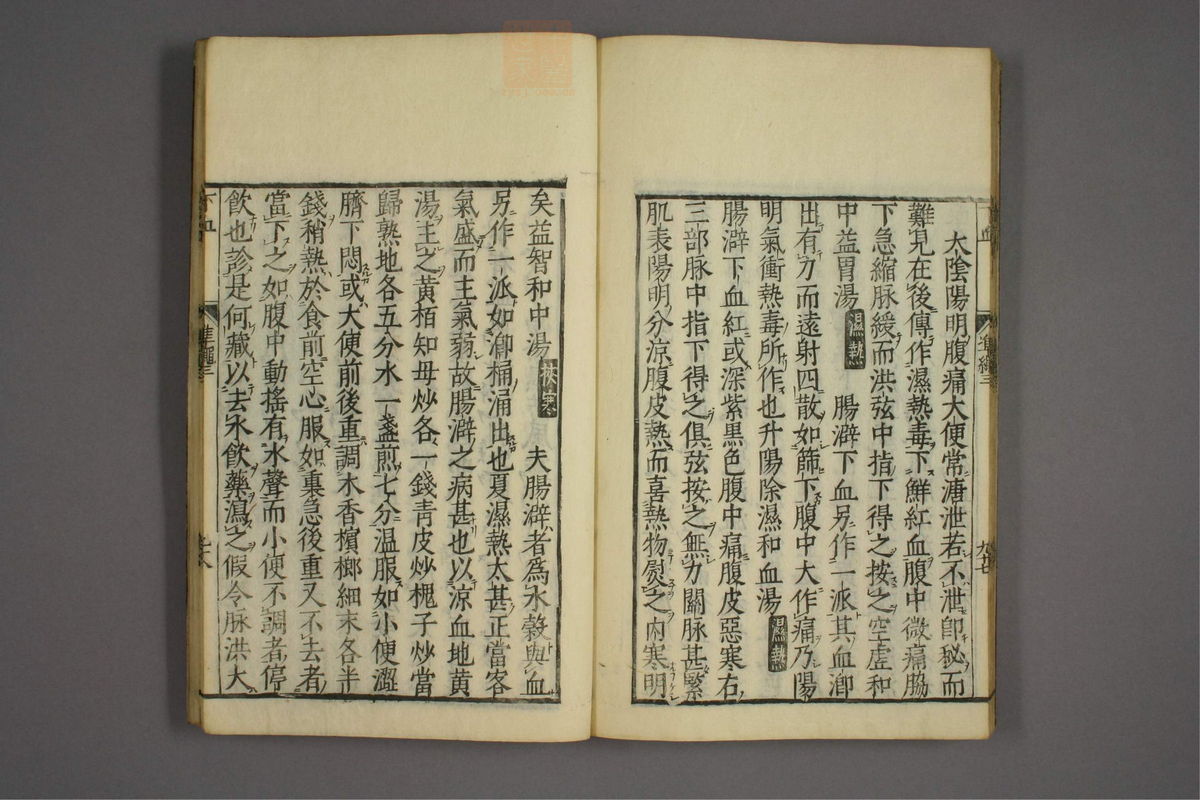 太陰陽明腹痛大便常溏泄若不泄卽秘而
難見在後傳作濕熱毒下鮮紅血腹中微痛脇
下急縮脉緩而洪弦中指下得之按之空虛和
中益胃湯 濕熱 腸澼下血另作一派其血喞
出有力而遠射四散如篩下腹中大作痛乃陽
明氣衝熱毒所作也升陽除濕和血湯 濕熱
腸澼下血紅或深紫黑色腹中痛腹皮惡寒右
三部脉中指下得之俱弦按之無力關脉甚緊
肌表陽明分涼腹皮熱而喜熱物熨之內寒明
矣益智和中湯 挾寒 夫腸澼者為水穀與血
另作一派如喞桶涌出也夏濕熱太甚正當客
氣盛而主氣弱故腸澼之病甚也以涼血地黄
湯主之黄栢知母炒各一錢青皮炒槐子炒當
歸熟地各五分水一盞煎七分温服如小便澀
臍下悶或大便前後重調木香檳榔細末各半
錢稍熱於食前空心服如裏急後重又不去者
當下之如腹中動搖有水聲而小便不調者停
飲也診是何藏以去水飲藥瀉之假令脉洪大
下血
準繩三